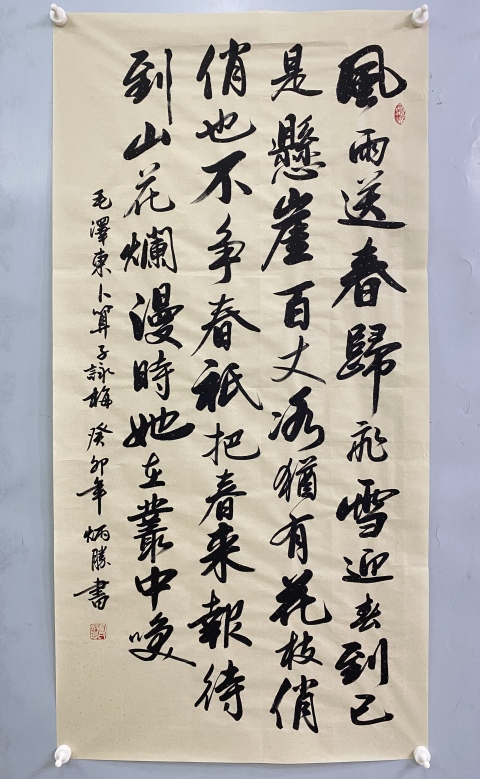 風雨送春歸飛雪迎春到已
是懸崖百丈冰猶有花枝俏
俏也不争春祇把春来報待
到山花爛漫時她在叢中笑
毛澤東卜算子詠梅癸卯年炳勝書